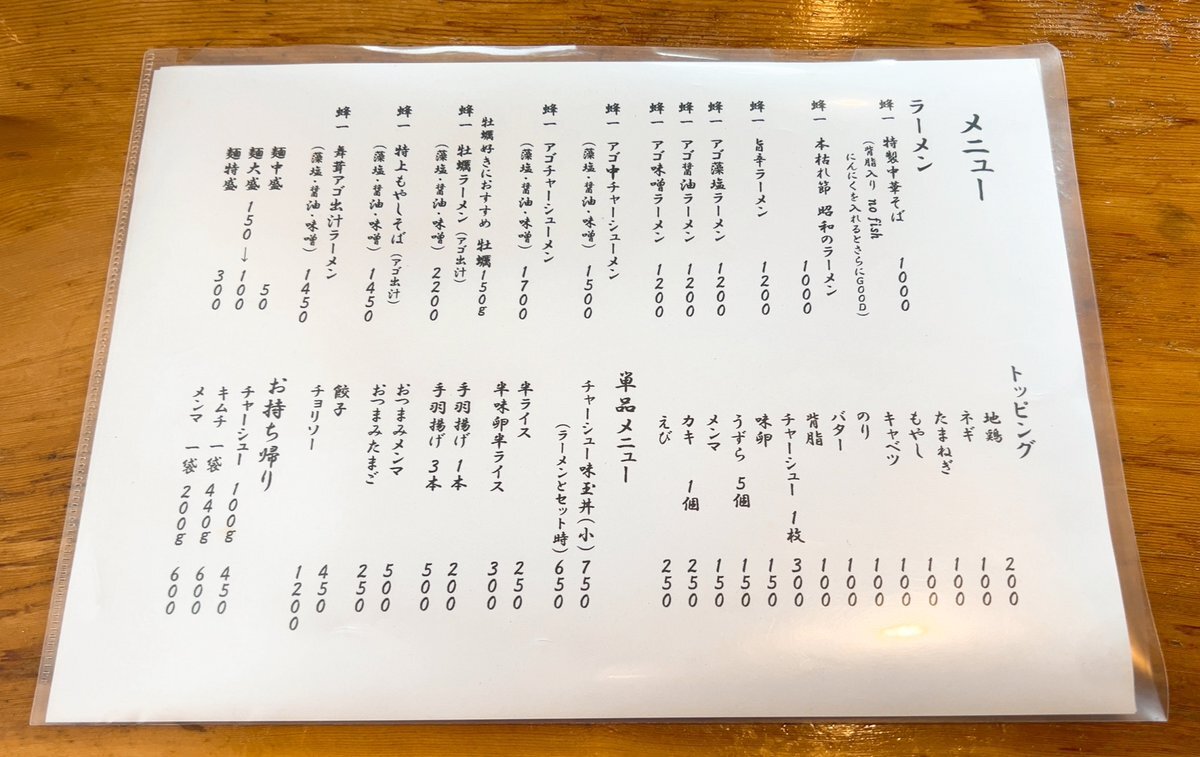 メニュー
ラーメン
蜂一 特製中華そば 1000
(背脂入り no fish
にんにくを入れるとさらにGOOD)
蜂一 本枯れ節 昭和のラーメン 1000
蜂一 旨辛ラーメン 1200
蜂一 アゴ藻塩ラーメン 1200
蜂一 アゴ醤油ラーメン 1200
蜂一 アゴ味噌ラーメン 1200
蜂一 アゴ中チャーシューメン
(藻塩・醤油・味噌) 1500
蜂一 アゴチャーシューメン
(藻塩・醤油・味噌) 1700
牡蠣好きにおすすめ 牡蠣150g
蜂一 牡蠣ラーメン(アゴ出汁)
(藻塩・醤油・味噌) 2200
蜂一 特上もやしそば(アゴ出汁)
(藻塩・醤油・味噌) 1450
蜂一 舞茸アゴ出汁ラーメン
(藻塩・醤油・味噌) 1450
麺中盛 50
麺大盛 150→100
麺特盛 300
トッピング
地鶏 200
ネギ 100
たまねぎ 100
もやし 100
キャベツ 100
のり 100
バター 100
背脂 100
チャーシュー 1枚 300
味卵 150
うずら 5個 150
メンマ 150
カキ 1個 250
えび 250
単品メニュー
チャーシュー味玉丼(小) 750
(ラーメンとセット時) 650
半ライス 250
半味卵半ライス 300
手羽揚げ 1本 200
手羽揚げ 3本 500
おつまみメンマ 500
おつまみたまご 250
餃子 450
チョリソー 1200
お持ち帰り
チャーシュー 100g 450
キムチ 一袋 440g 600
メンマ 一袋 200g 600